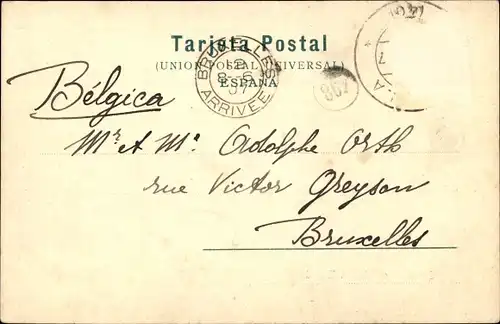 Tarjeta Postal
(UNION POSTAL UNIVERSAL)
ESPAÑA
BRUXELLES
ARRIVEE
Bélgica
Mr. et Me. Adolphe Orth
rue Victor Greyson
Bruxelles